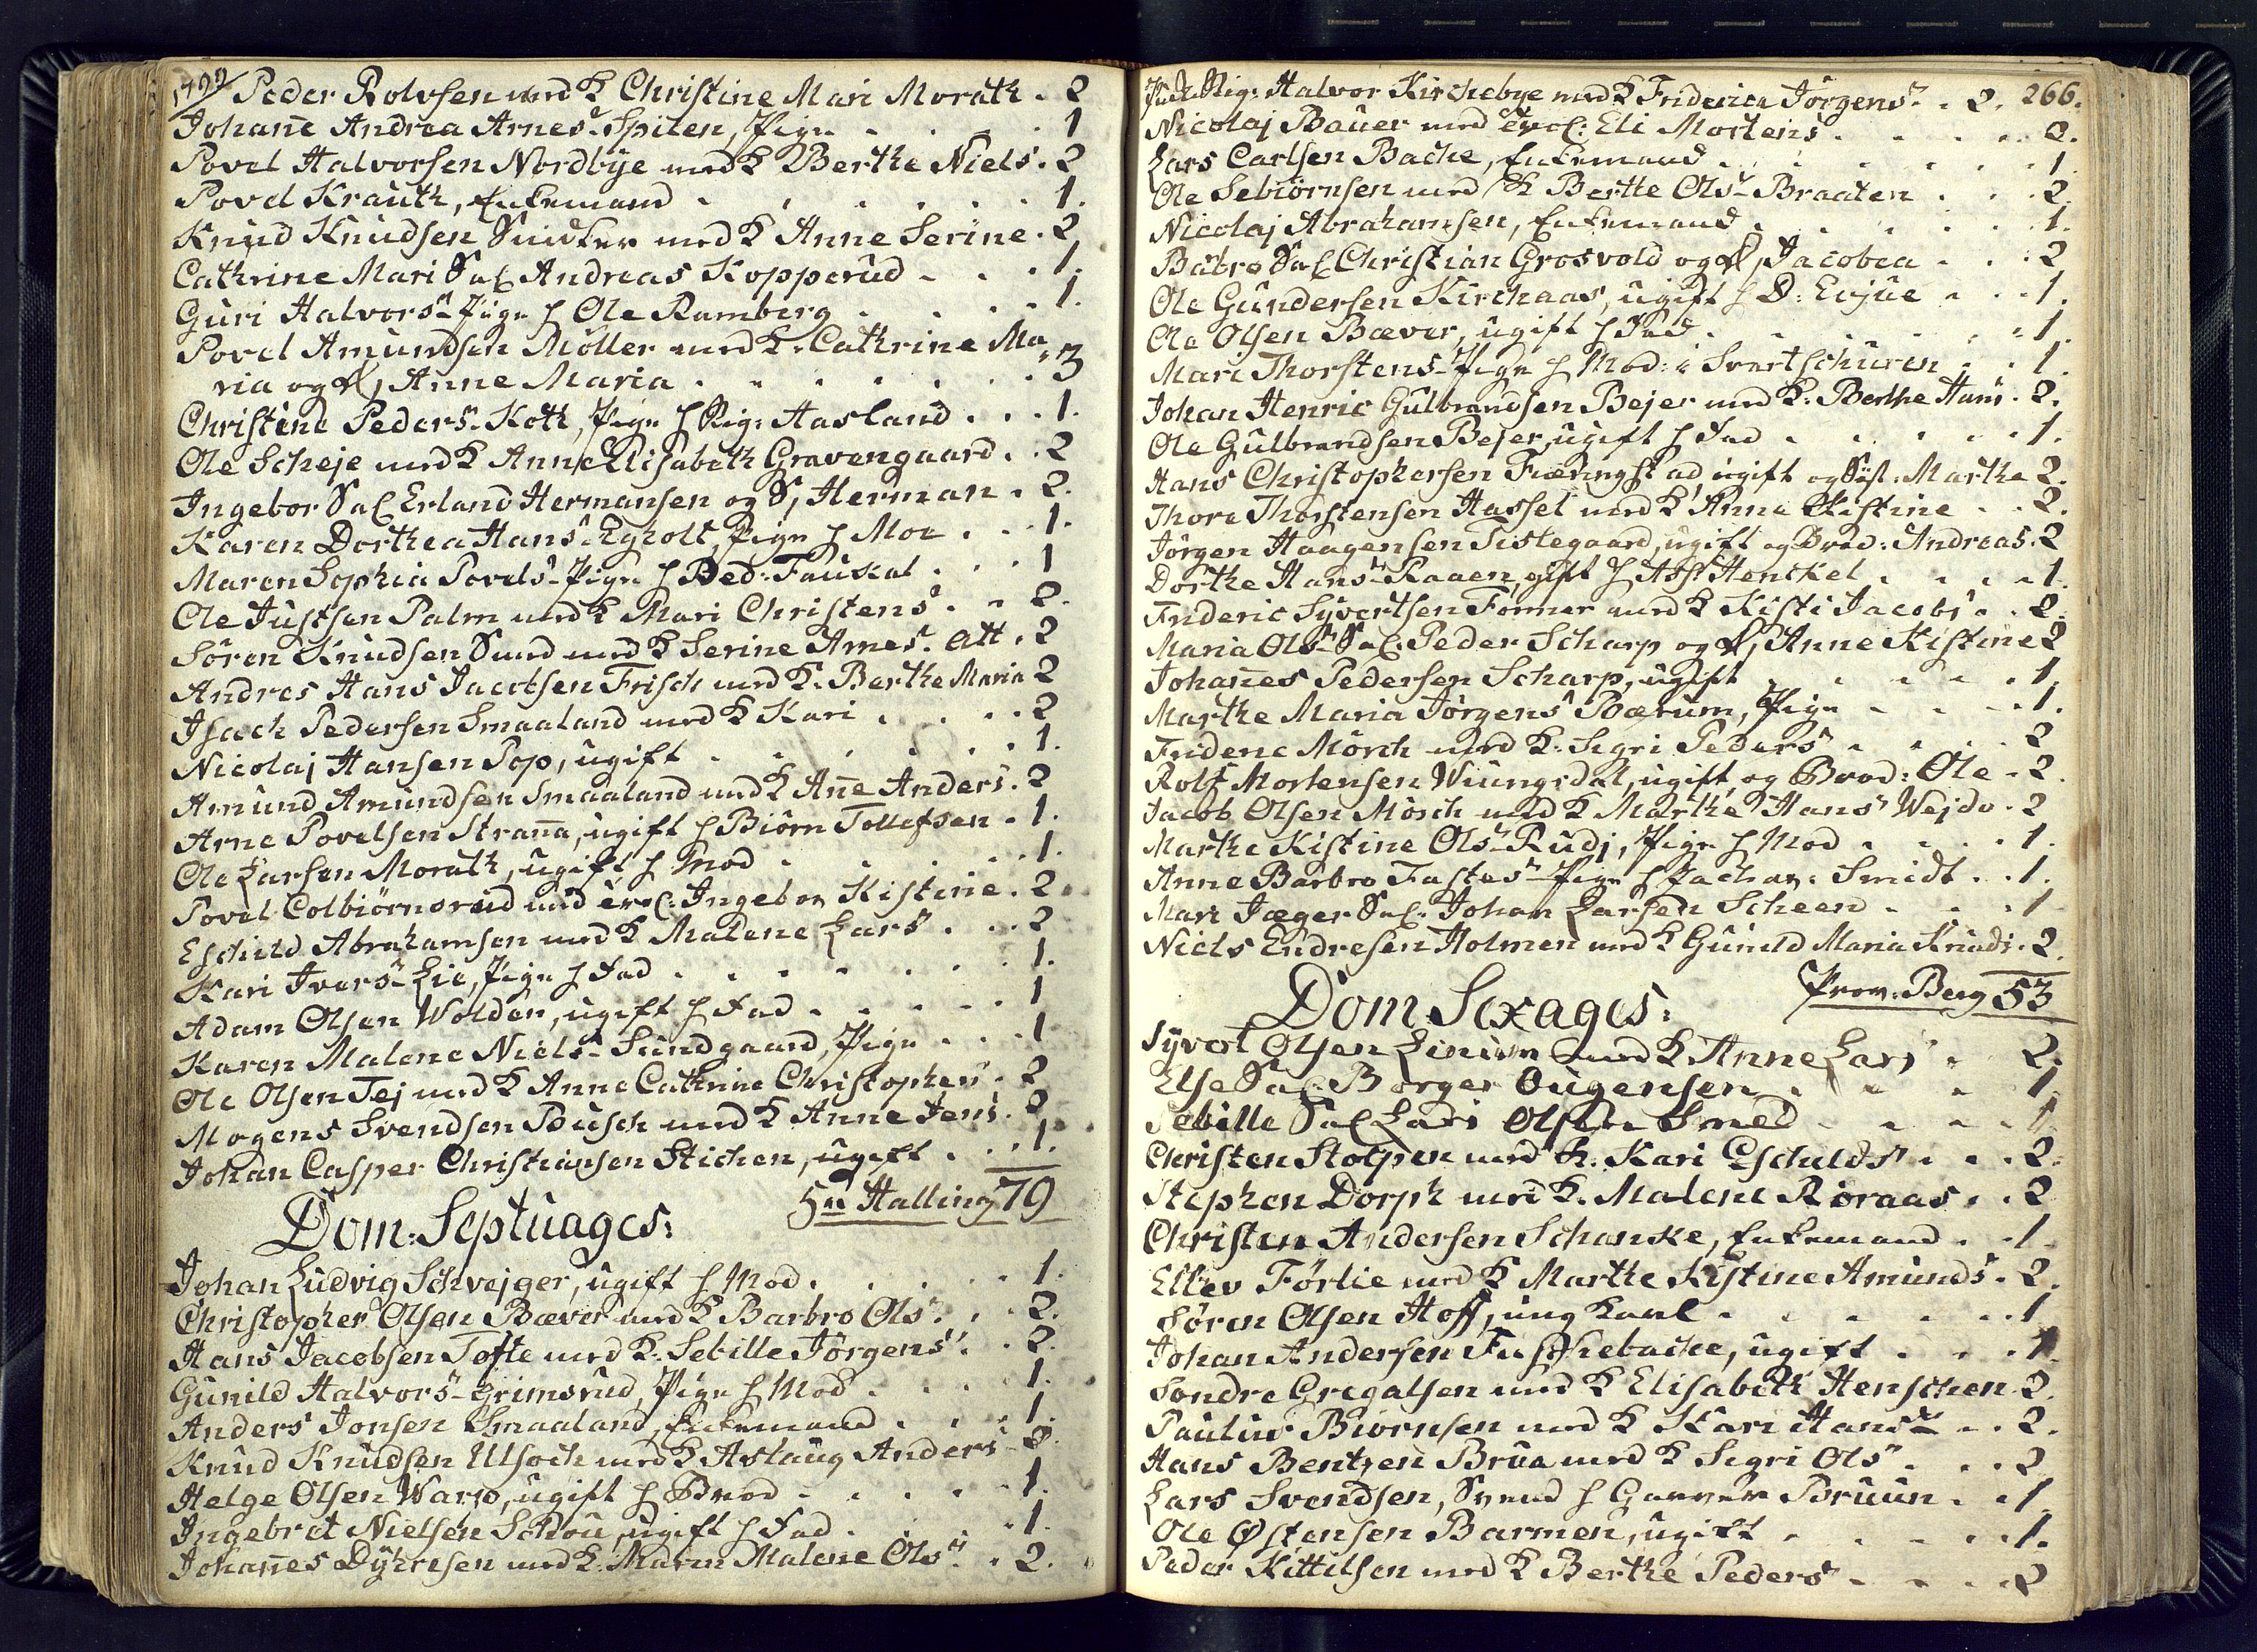 Peder Rolvsen med K Christine Mari Morath . 2
Johane Andrea Arnes. Spiten, Pige . . . . 1
Povel Halvorsen Nordbÿe med K Berthe Niels . 2
Povel Krauth, Enkemand . . . . . . 1.
Knud Knudsen Snidker med K Anne Serine . 2
Cathrine Mari Sal Andreas Kopperud . . . 1.
Guri Halvors Pige h Ole Ramberg . . . . 1.
Povel Amundsen Möller med K. Cathrine Ma-
ria og D, Anne Maria . . . . . . . 3
Christine Peders Koth, Pige h Rig: Hasland . . . 1.
Ole Scheje med K Anne Elisabeth Gravengaard . . 2
Ingebor Sal Erland Hermansen og S, Herman . 2.
Karen Dorthea Hans Egholt, Pige h Moe . . . 1.
Maren Sophia Povels Pige h Ped: Fauskal . . . 1
Ole Justsen Palm med K Mari Christens . . 2.
Sören Knudsen Sund med K Serine Arnes. Att . 2
Andres Hans Jacobsen Frisch med K. Berthe Maria 2
Isach Pedersen Smaaland med K Kari . . . . 2
Nicolaj Hansen Pop, ugift . . . . . . 1.
Amund Amundsen Smaaland med K Ane Anders . 2
Arne Povelsen Strana, ugift h Biörn Tollefsen . 1.
Ole Larsen Morath, ugift h Mod . . . . . 1.
Povel Colbiörnsrud med trol: Ingebor Kistine . 2.
Eschild Abrahamsen med K Malene Lars . . . 2
Kari Ivers Lie, Pige h Fad . . . . . . 1.
Adam Olsen Wolden, ugift h Fad . . . . . 1
Karen Malene Niels Sundgaard, Pige . . . 1
Ole Olsen Tej med K Anne Cathrine Christophers . 2
Mogens Svendsen Busch med K Anne Jens . 2
Johan Casper Christiansen Stichen, ugift . . . 1.
Hr Halling 79
Dom: Septuages:
Johan Ludvig Schvejger, ugift h Mod . . . . . 1.
Christopher Olsen Bæver med K Barbro Ols . . 2.
Hans Jacobsen Tofte med K. Sebille Jörgens . . 2.
Gunild Halvors Grimsrud, Pige h Mod . . . . 1.
Anders Jonsen Smaaland, Enkemand . . . . 1
Knud Knudsen Ulsoch med K Aslaug Anders 2.
Helge Olsen Warp, ugift h Brod . . . . . 1.
Ingebret Nielsen Schou, ugift h Fad . . . . 1.
Johanes Dÿhresen med K. Maren Malene Ols . 2.
266.
Rig: Halvor Kirchebye med K Friderica Jörgens . . 2.
Nicolaj Bauer med trol: Eli Mortens . . . . . 2.
Lars Carlsen Bache, Enkemand . . . . . . 1.
Ole Sebiörnsen med K Berthe Ols Braaten . . . 2.
Nicolaj Abrahamsen, Enkemand . . . . . . 1.
Batro Sal Christian Grosvold og D, Jacobea . . . 2
Ole Gundersen Kirchaas, ugift h D: Evjue . . . 1.
Ole Olsen Bæver, ugift h Fad . . . . . . 1.
Mari Thorstens Pige h Mod: i Svertschuren . . 1.
Johan Henric Gulbrandsen Bejer med K. Berthe Hans . 2.
Ole Gulbrandsen Bejer, ugift h Fad . . . . . . 1.
Hans Christophersen Fiæringstad, ugift og Syst: Marthe 2.
Thore Thorstensen Hassel med K Anne Kistine . . 2.
Jörgen Haagensen Tistegaard, ugift og Brod: Andreas . 2
Dorthe Hans Raaen, gift h Ass Henckel . . . . 1.
Frideric Syvertsen Former med K Kisti Jacobs . . 2.
Maria Ols Sal. Peder Scharp og D, Anne Kistine 2
Johanes Pedersen Scharp, ugift . . . . . 1.
Marthe Maria Jörgens Bærum, Pige . . . . 1.
Fridene Mörch med K. Segri Peders . . . . 2
Rolf Mortensen Wiungsdal, ugift, og Brod: Ole . 2.
Jacob Olsen Mösch med K Marthe Hans Wejdo . 2
Marthe Kistine Ols Rudj, Pige h Mod . . . . 1.
Anne Barbro Fastes Pige h Zachar: Smidt . . 1.
Mari Jæger Sal. Johan Larsen Scheen . . . 1
Niels Endresen Holmen med K Gunild Maria Knuds . 2.
Prov: Berg 53
Dom Sexages:
Syvert Olsen Linium med K Anne Lars . 2.
Else Sal. Borger Ougensen . . . . 1.
Sebille Sal Lars Olsen Smed . . . . 1.
Christen Stolpen med K. Kari Eschilds . . . 2.
Stephen Dorph med K. Malene Rioraas . . 2
Christen Andersen Schanke, Enkemand . . 1.
Ellev Förlie med K Marthe Kistine Amunds . 2.
Sören Olsen Hoff, ung Karl . . . . . . 1
Johan Andersen Fuschebache, ugift . . . 1
Sondre Gregalsen med K Elisabeth Henschen . 2.
Paulus Biörnsen med K Kari Hans . . 2.
Hans Bentzen Brua med K Segri Ols . . . 2
Lars Svendsen, Svend h Garver Bruun . . 1.
Ole Østensen Barmen, ugift . . . . . 1.
Peder Kittilsen med K Berthe Peders . . . . 2